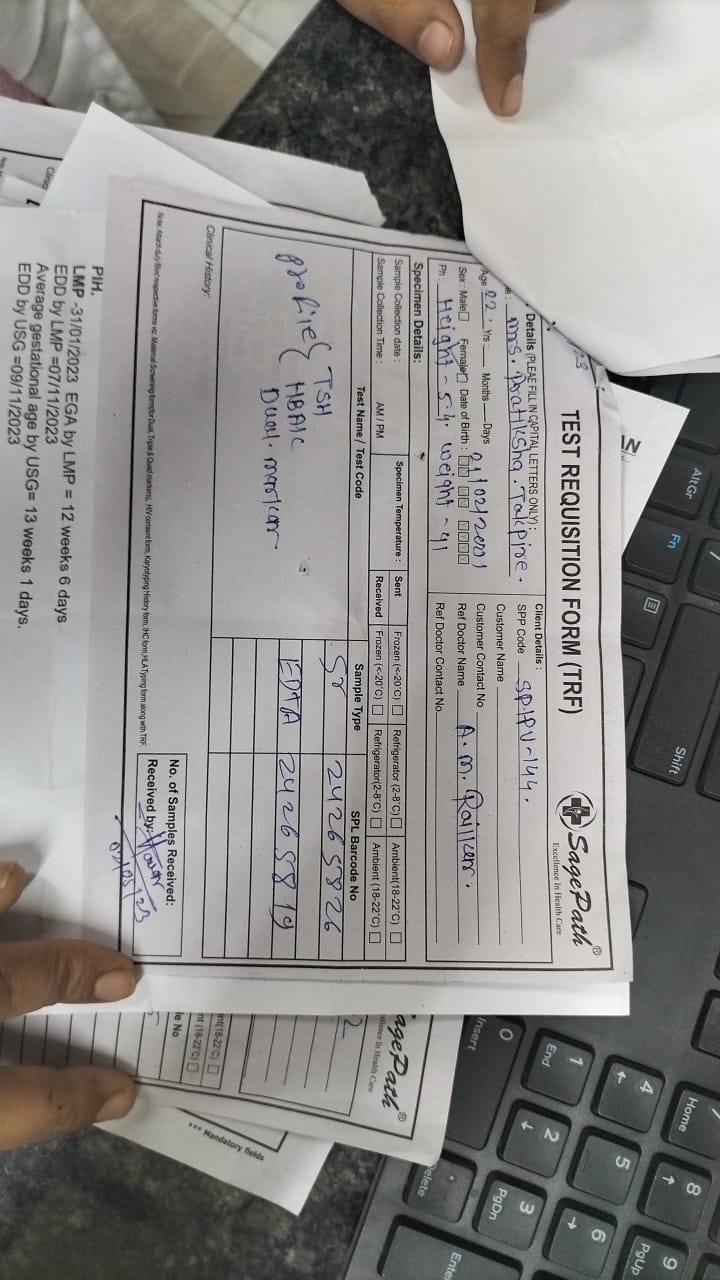 TEST REQUISITION FORM (TRF)
SagePath®
Excellence In Health Care
Details (PLEAE FILL IN CAPITAL LETTERS ONLY) :
Mrs. Pratiksha. Takpire.
Age 22. Yrs Months Days 21/02/2001
Sex : Male Female Date of Birth :
Ph : Height - 5.4. weight - 41
Client Details :
SPP Code SPHPV-144.
Customer Name
Customer Contact No
Ref Doctor Name A. M.
Ref Doctor Contact No.
Specimen Details:
Sample Collection date : Specimen Temperature : Sent Frozen (<-20°C) Refrigerator (2-8°C) Ambient(18-22°C)
Sample Collection Time : AM / PM Received Frozen (<-20°C) Refrigerator(2-8°C) Ambient (18-22°C)
Test Name / Test Code Sample Type SPL Barcode No
profile { TSH Sr 24265826
HBA1C EDTA 24265819
Dual. marker
Clinical History:
Note: Attach duly filled respective forms viz. Maternal Screening form(for Dual, Triple & Quad markers), HIV consent form, Karyotyping History form, IHC form,HLA Typing form along with TRF.
No. of Samples Received:
Received by:
PIH.
LMP -31/01/2023 EGA by LMP = 12 weeks 6 days
EDD by LMP =07/11/2023
Average gestational age by USG= 13 weeks 1 days.
EDD by USG =09/11/2023
agePath®
ellence In Health Care
2
nt(18-22°C)
nt (18-22°C)
le No
*** Mandatory fields
AltGr
Fn
Shift
Insert
0
End
1
2
3
PgDn
4
5
6
Home
8
9
PgUp
elete
Enter